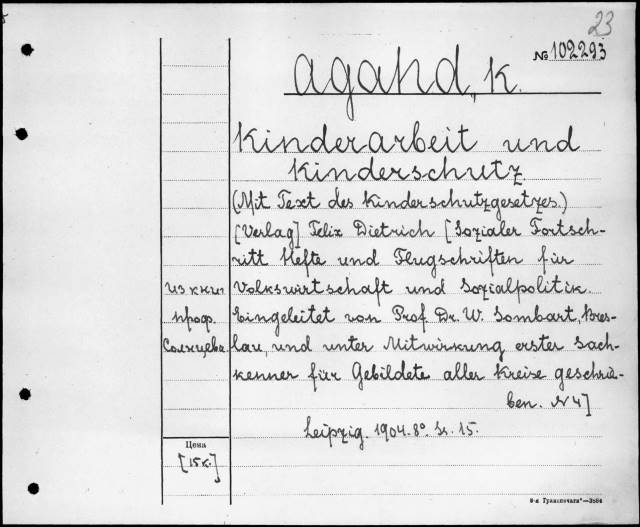 23
№ 102293
Agahd, K.
Kinderarbeit und
Kinderschutz.
(Mit Text des Kinderschutzgesetzes.)
[Verlag] Felix Dietrich [Sozialer Fortsch-
ritt Hefte und Flugschriften für
Volkswirtschaft und Sozialpolitik.
Eingeleitet von Prof. Dr. W. Sombart, Bres-
lau, und unter Mitwirkung erster Sach-
kenner für Gebildete aller Kreise geschrie-
ben. N 4]
Leipzig. 1904. 8°. S. 15.
из книг
проф.
Солнцева
Цена
[15 к.]
8-я Транспечати"—3584